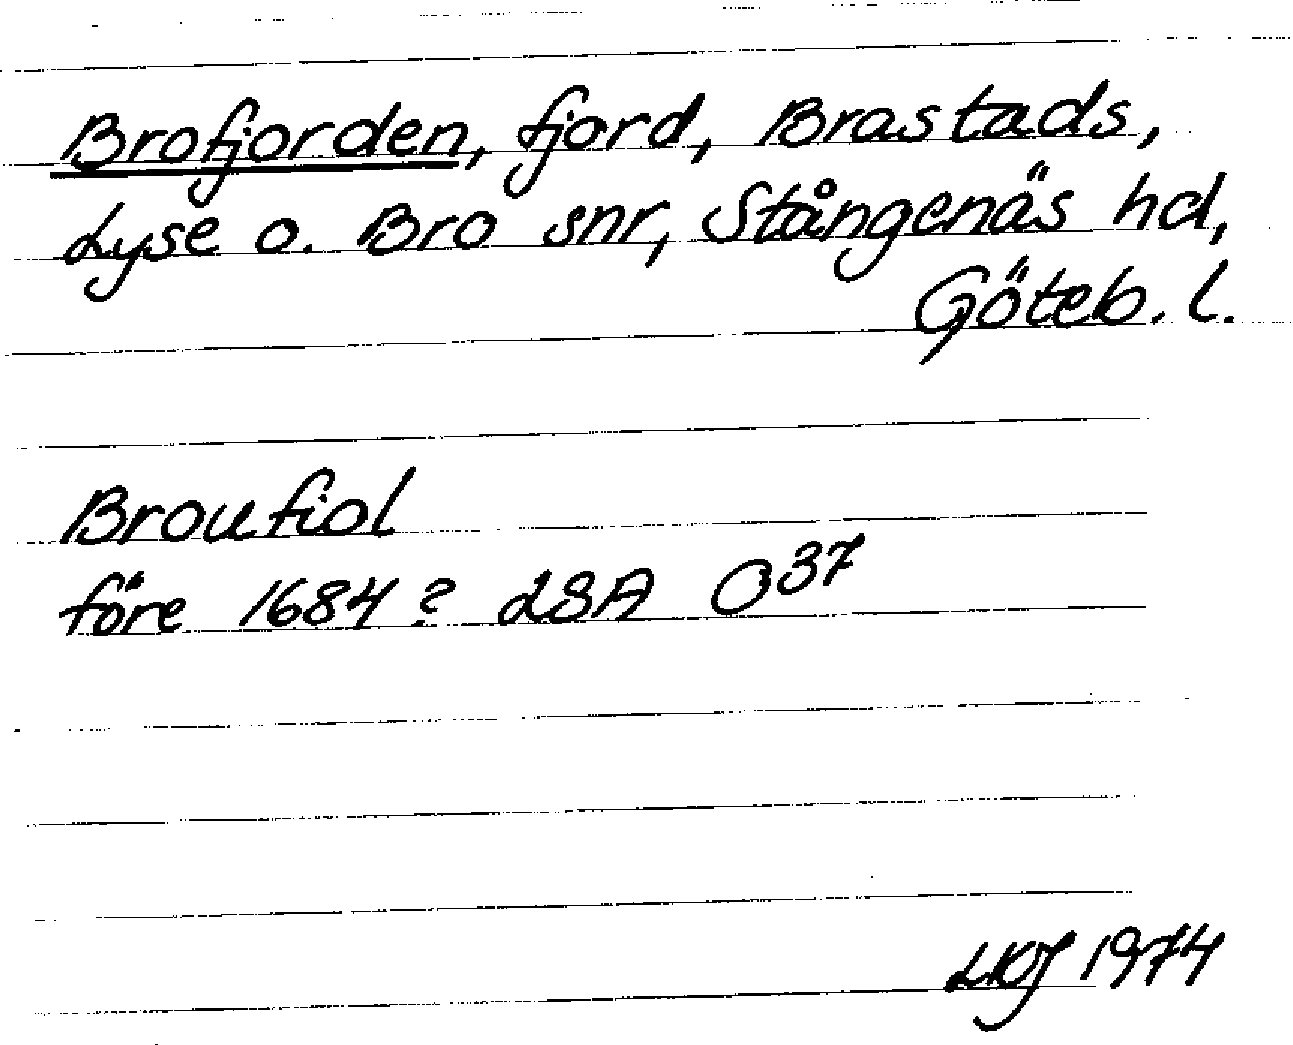 Brofjorden, fjord, Brastads,
Lyse o. Bro snr, Stångenäs hd,
Göteb. l.
Broufiol
före 1684? LSA O³⁷
1974